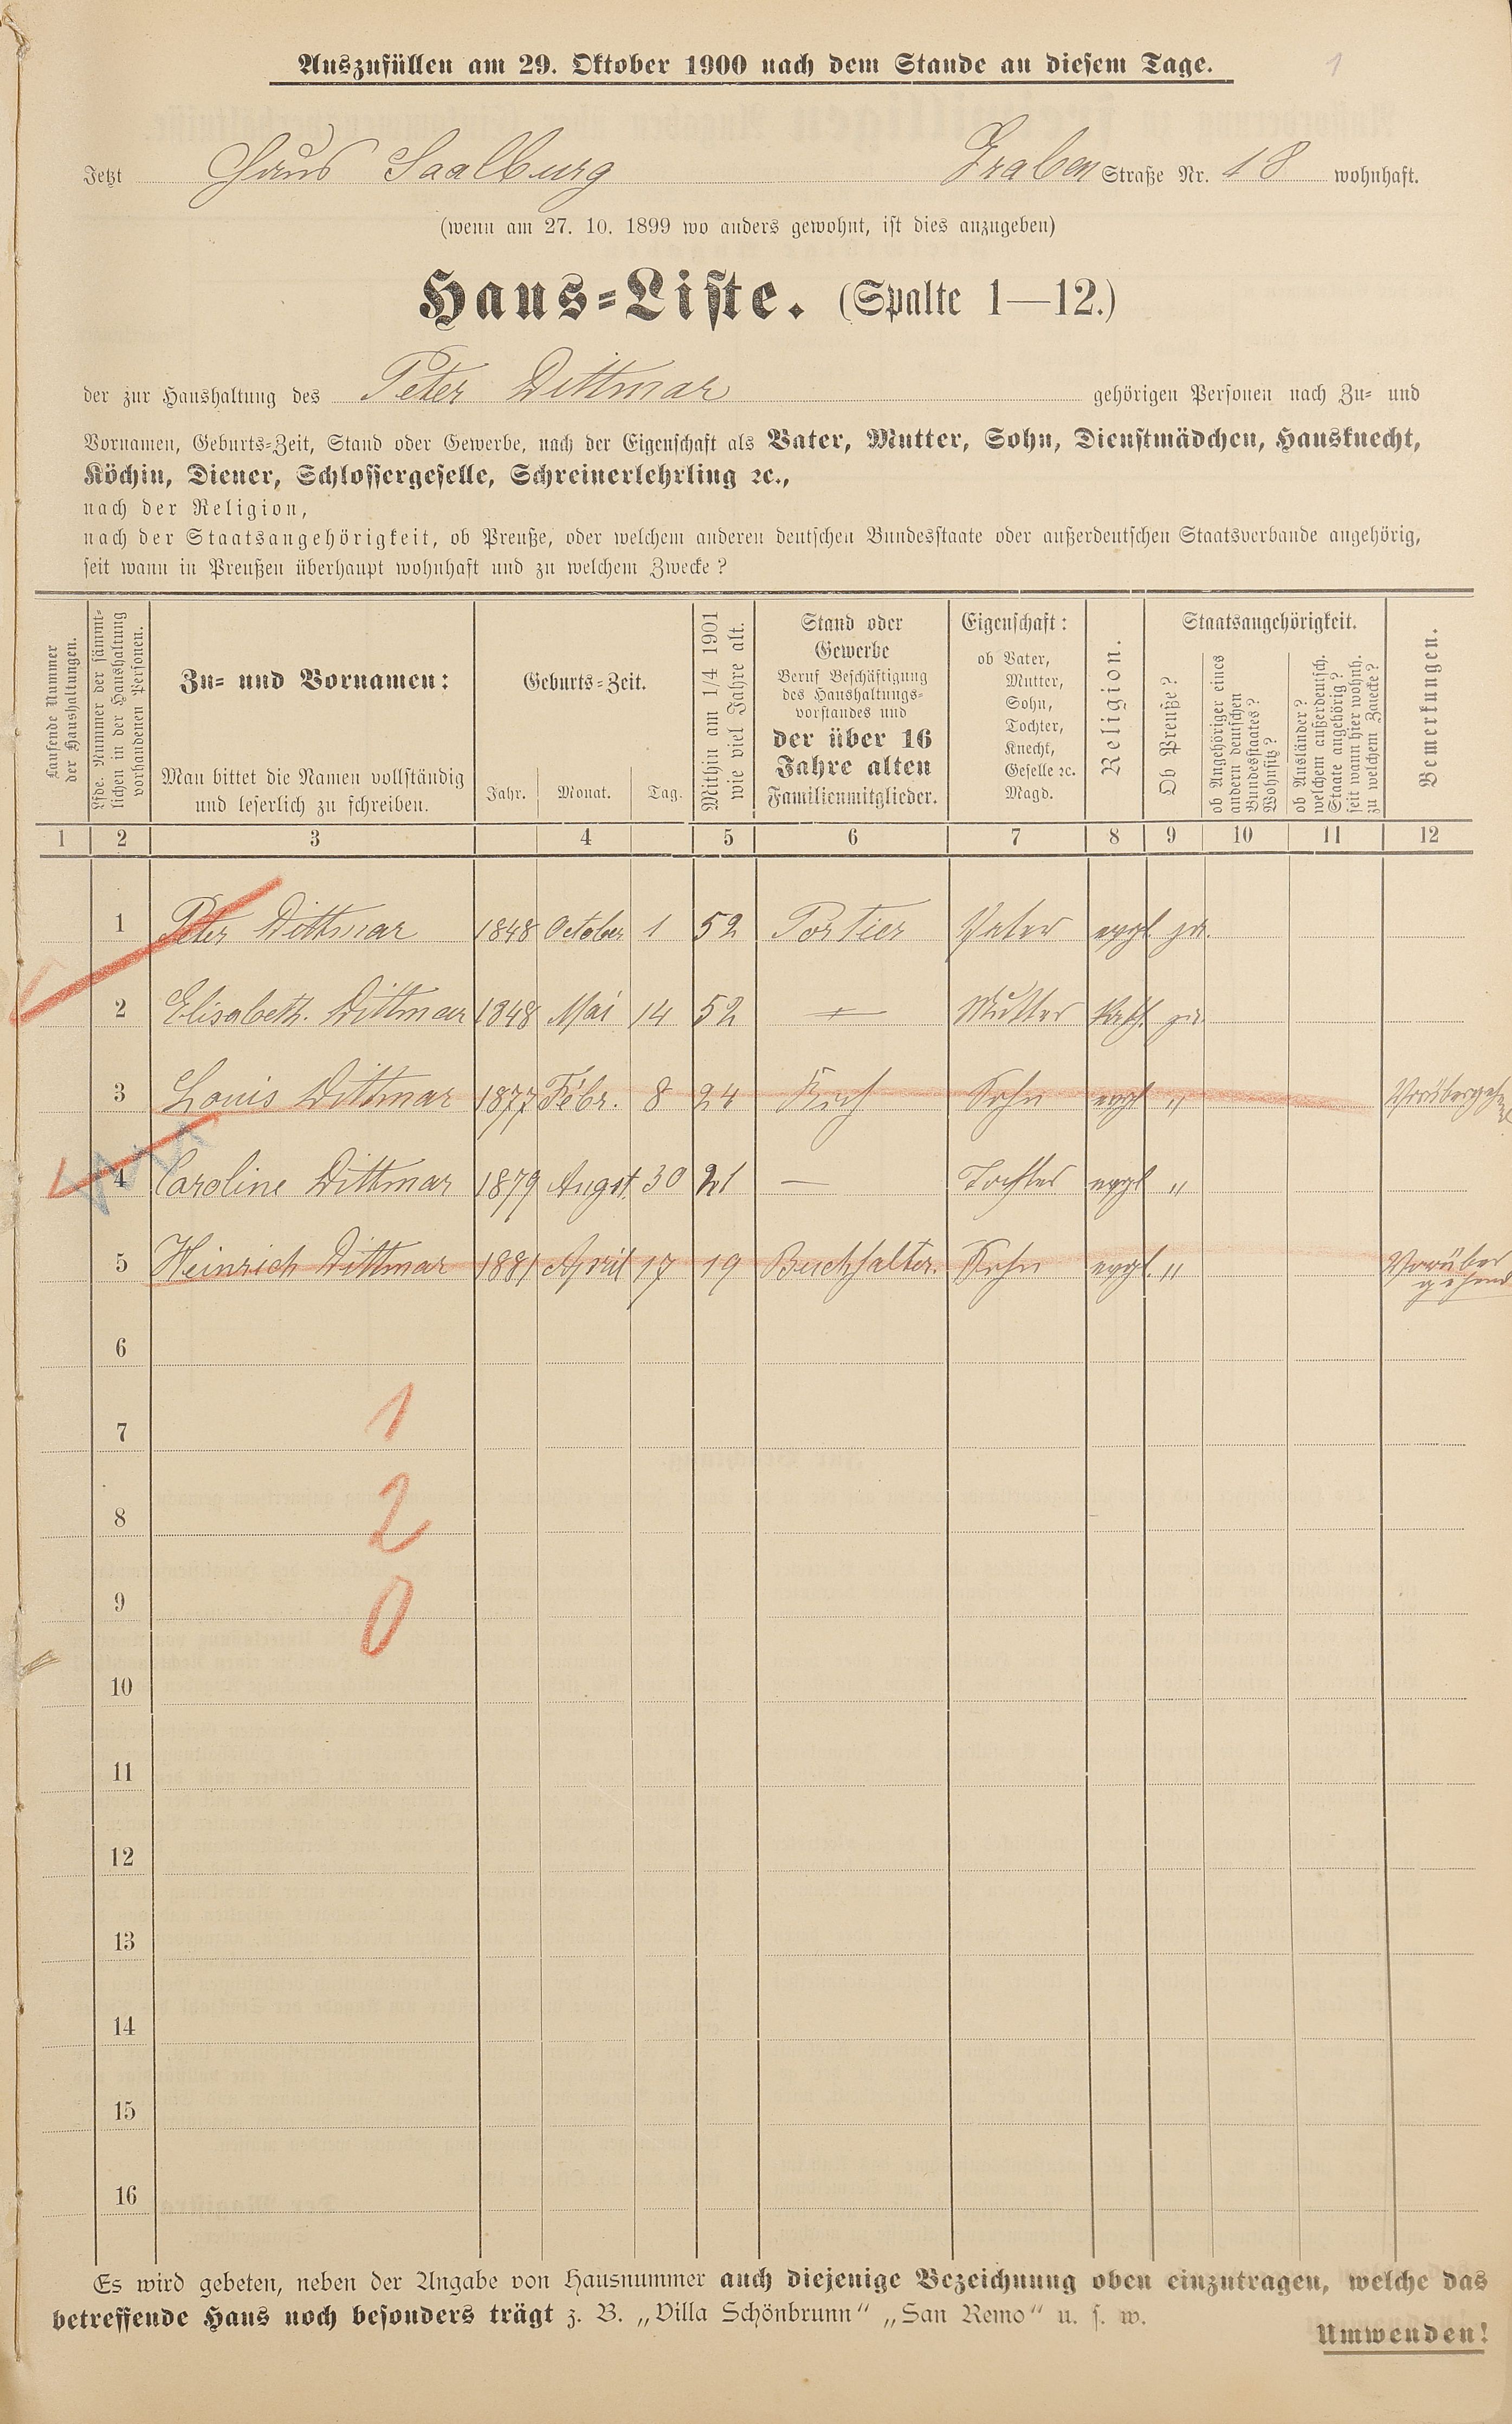 Auszufüllen am 29. Oktober 1900 nach dem Stande an diesem Tage.
1
Jetzt Haus Saalburg Graben Straße Nr. 18 wohnhaft.
(wenn am 27. 10. 1899 wo anders gewohnt, ist dies anzugeben)
Haus-Liste. (Spalte 1—12.)
der zur Haushaltung des Peter Dittmar gehörigen Personen nach Zu- und
Vornamen, Geburts-Zeit, Stand oder Gewerbe, nach der Eigenschaft als Vater, Mutter, Sohn, Dienstmädchen, Hausknecht,
Köchin, Diener, Schlossergeselle, Schreinerlehrling ꝛc.,
nach der Religion,
nach der Staatsangehörigkeit, ob Preuße, oder welchem anderen deutschen Bundesstaate oder außerdeutschen Staatsverbande angehörig,
seit wann in Preußen überhaupt wohnhaft und zu welchem Zwecke?
Laufende Nummer
der Haushaltungen.
Lfde. Nummer der sämmt-
lichen in der Haushaltung
vorhandenen Personen.
Zu- und Vornamen:
Man bittet die Namen vollständig
und leserlich zu schreiben.
Geburts-Zeit.
Jahr. Monat. Tag.
Mithin am 1/4 1901
wie viel Jahre alt.
Stand oder
Gewerbe
Beruf Beschäftigung
des Haushaltungs-
vorstandes und
der über 16
Jahre alten
Familienmitglieder.
Eigenschaft:
ob Vater,
Mutter,
Sohn,
Tochter,
Knecht,
Geselle ꝛc.
Magd.
Religion.
Staatsangehörigkeit.
Ob Preuße?
ob Angehöriger eines
andern deutschen
Bundesstaates?
Wohnsitz?
ob Ausländer?
welchem außerdeutsch.
Staate angehörig?
seit wann hier wohnh.
zu welchem Zwecke?
Bemerkungen.
1 2 3 4 5 6 7 8 9 10 11 12
1 Peter Dittmar 1848 October 1 52 Portier Vater evgl. ja.
2 Elisabeth. Dittmar 1848 Mai 14 52 — Mutter Kath. ja.
3 Louis Dittmar 1877 Febr. 8 24 Sohn evgl "
4 Caroline Dittmar 1879 Augst. 30 21 — Tochter evgl "
5 Heinrich Dittmar 1881 April 17 19 Buchhalter. Sohn evgl. " Vorüber
gehend
6
7
8
9
10
11
12
13
14
15
16
1
2
0
Es wird gebeten, neben der Angabe von Hausnummer auch diejenige Bezeichnung oben einzutragen, welche das
betreffende Haus noch besonders trägt z. B. „Villa Schönbrunn“ „San Remo“ u. s. w.
Umwenden!